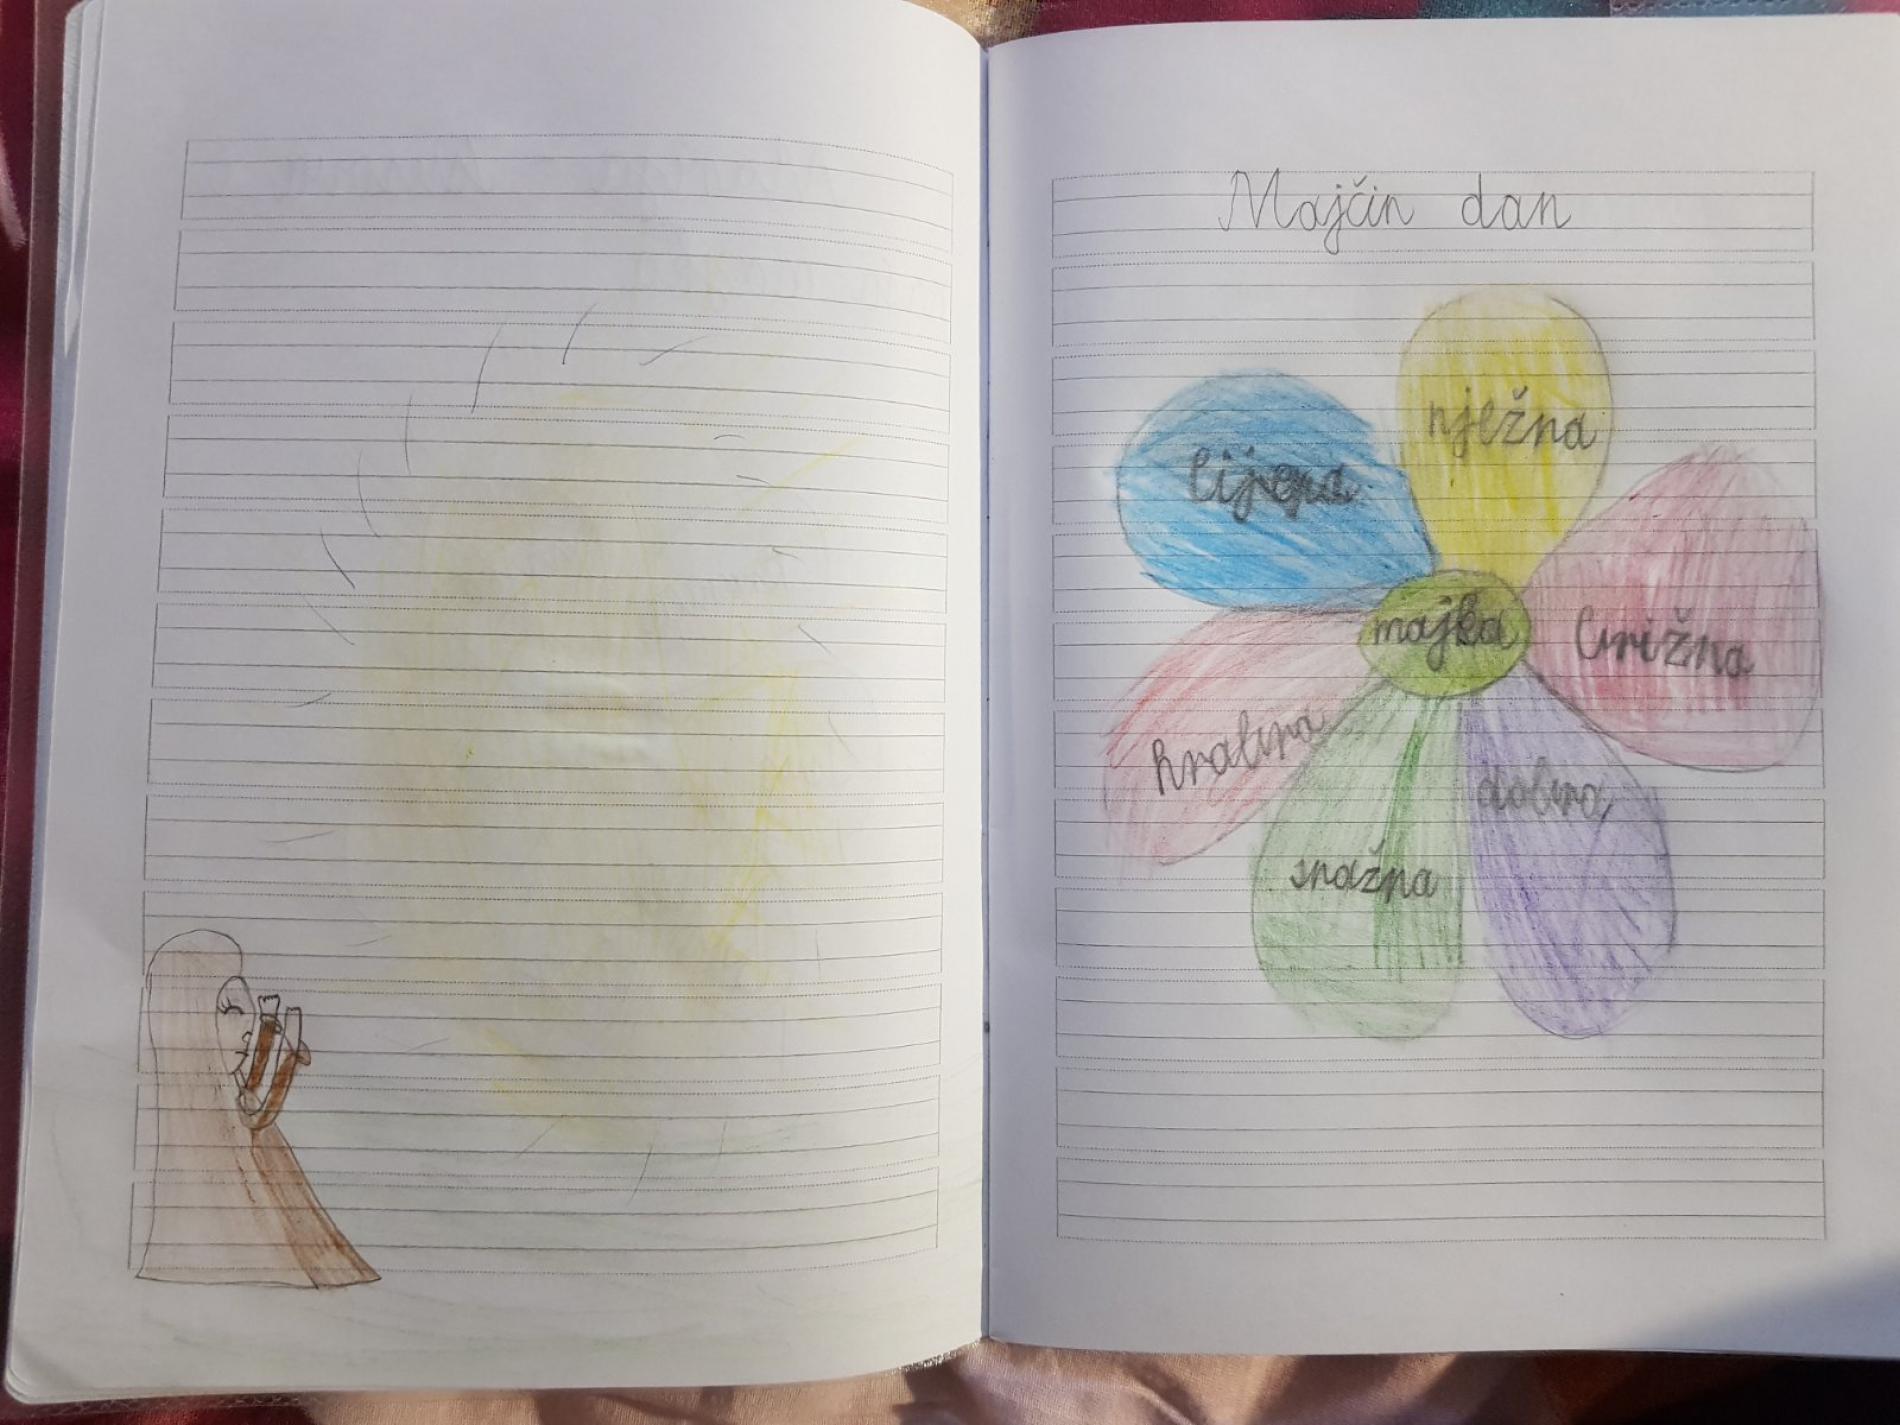 Majčin dan
nježna
lijepa
brižna
majka
hrabra
dobra
snažna